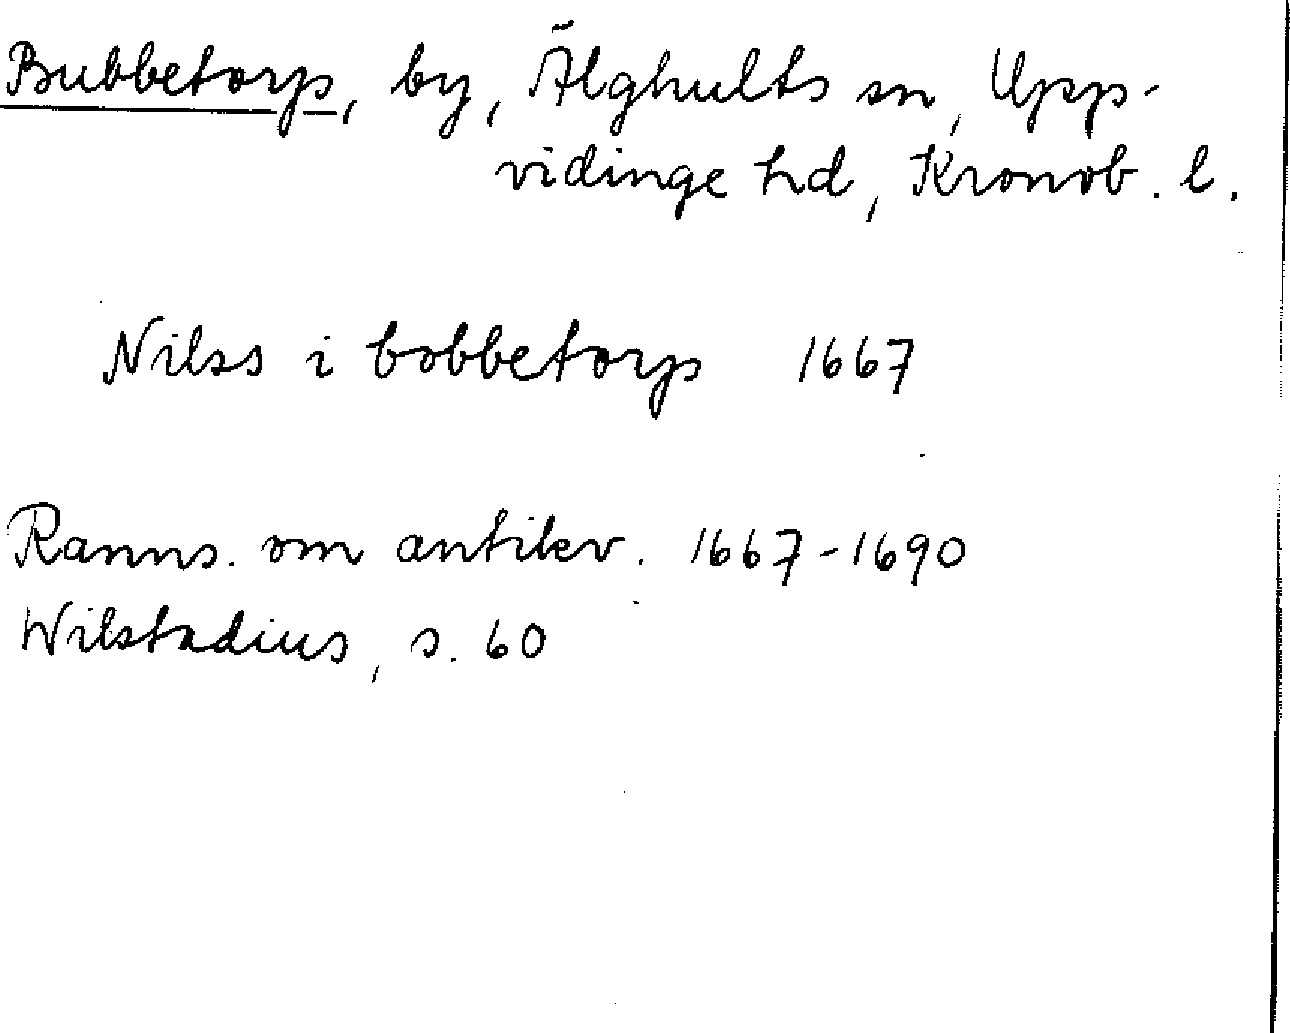 Bubbetorp, by, Älghults sn, Upp-
vidinge hd, Kronob. l.
Nilss i bobbetorp 1667
Ranns. om antikv. 1667-1690
Wilstadius, s. 60